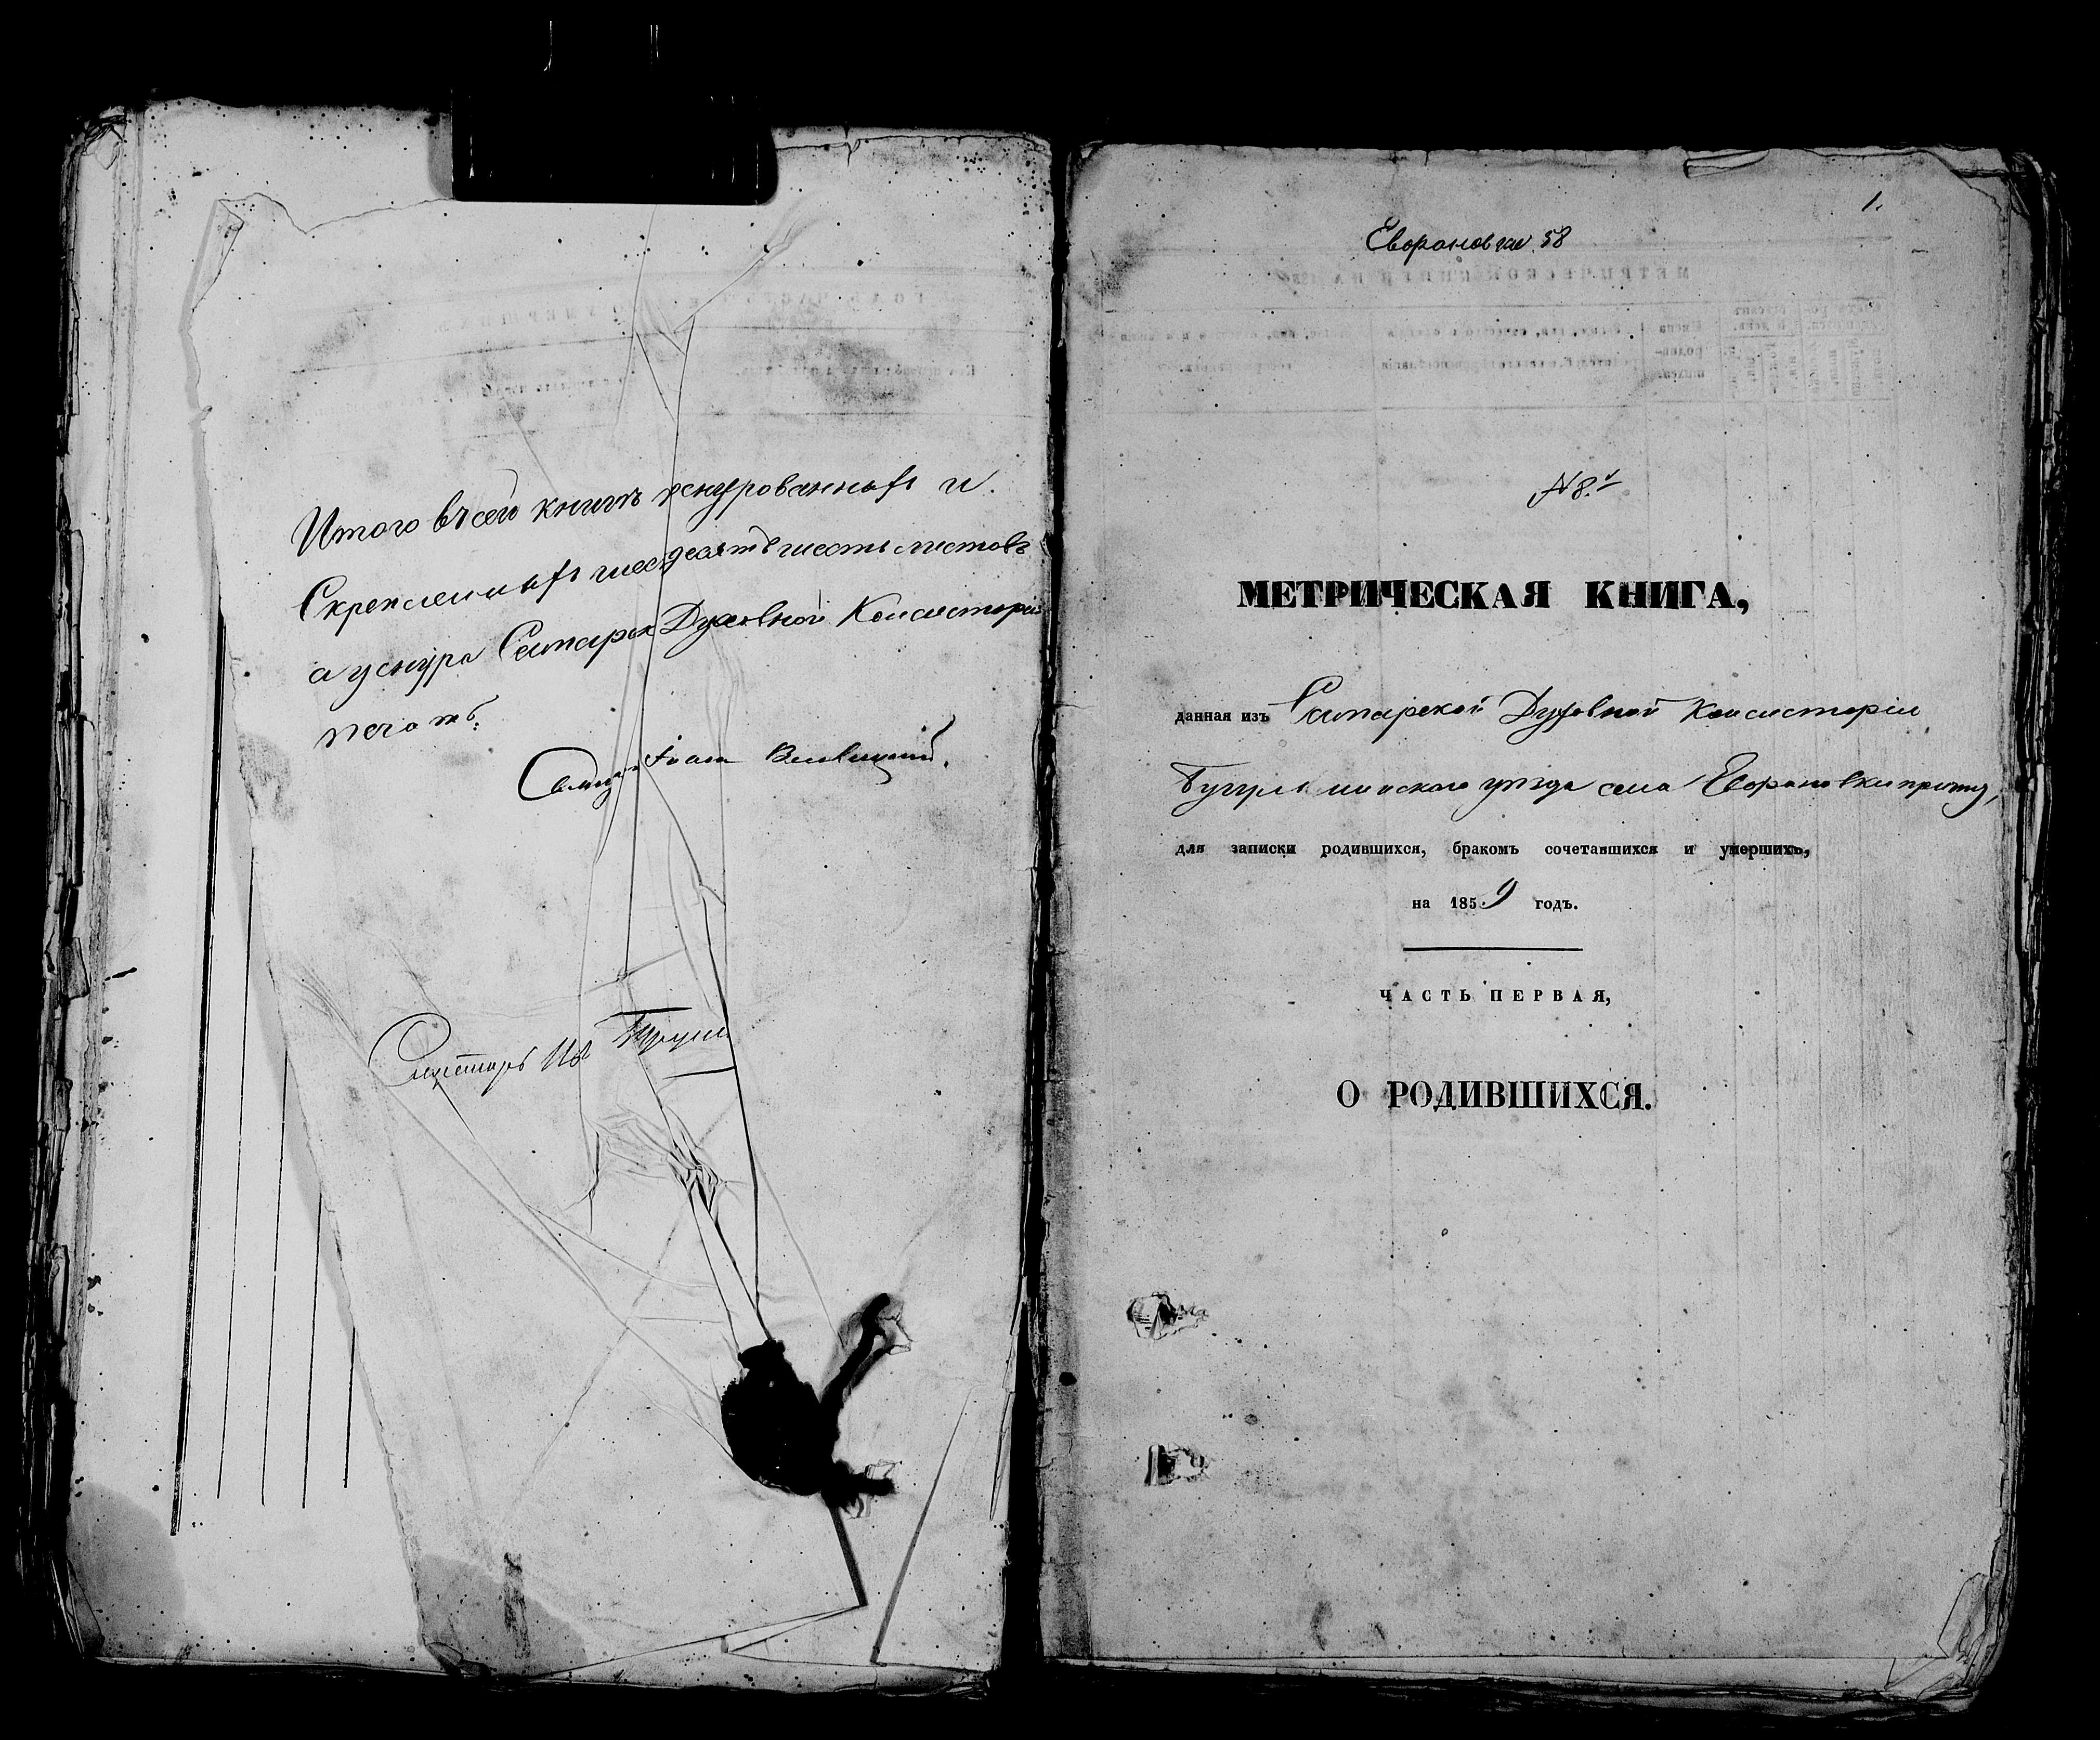 Итого въ сей книгѣ шнурованныхъ и
Скрепленныхъ шесдесятъ шесть листовъ
а у снура Самарск Духовной Консисторіи
печать.
Іоан
Секретарь Ив
1.
Еворановка 58
№ 8.
МЕТРИЧЕСКАЯ КНИГА,
данная изъ Самарской Духовной Консисторіи
Бугульминскаго уѣзда села Еворановки причту,
для записки родившихся, бракомъ сочетавшихся и умершихъ,
на 1859 годъ.
ЧАСТЬ ПЕРВАЯ,
О РОДИВШИХСЯ.